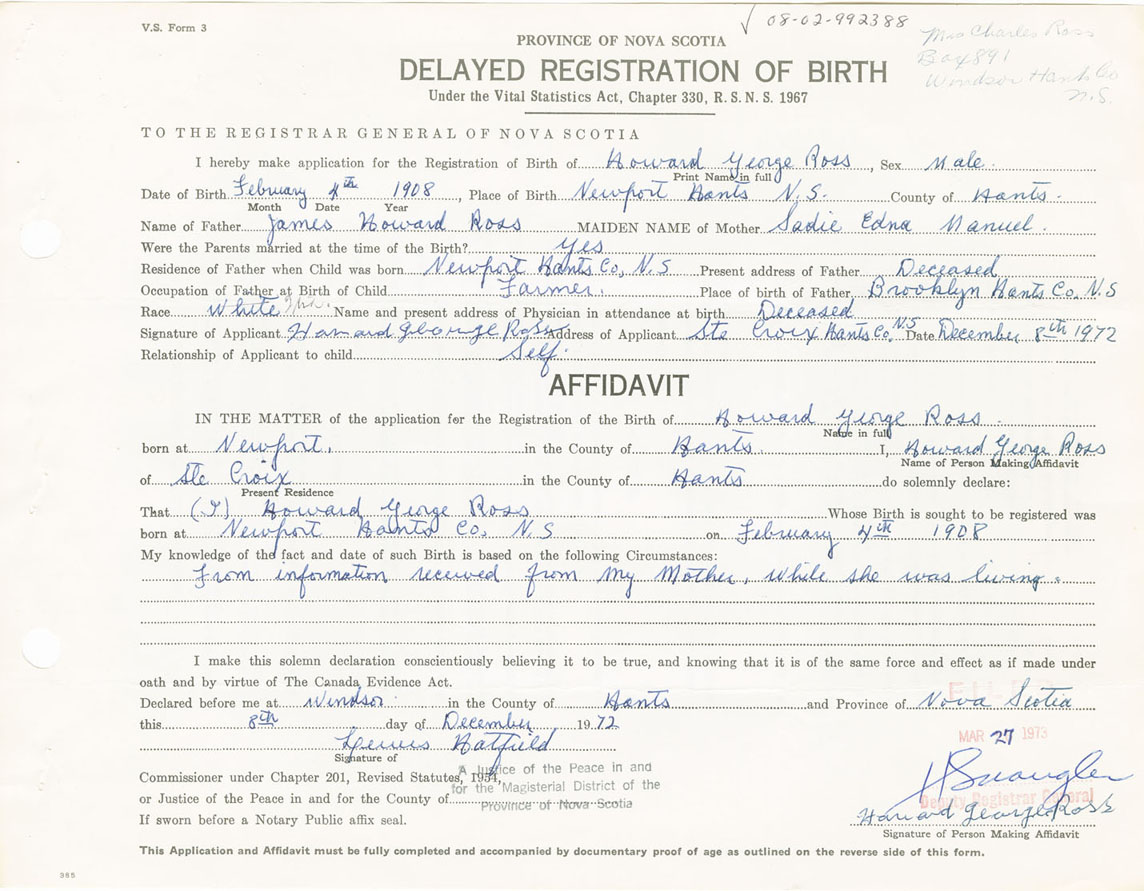 V.S. Form 3
✓ 08-02-992388
Mrs Charles Ross
Box 891
Windsor Hants Co
N.S.
PROVINCE OF NOVA SCOTIA
DELAYED REGISTRATION OF BIRTH
Under the Vital Statistics Act, Chapter 330, R. S. N. S. 1967
TO THE REGISTRAR GENERAL OF NOVA SCOTIA
I hereby make application for the Registration of Birth of Howard George Ross, Sex Male.
Print Name in full
Date of Birth February 4th 1908, Place of Birth Newport Hants N.S. County of Hants.
Month Date Year
Name of Father James Howard Ross MAIDEN NAME of Mother Sadie Edna Manuel.
Were the Parents married at the time of the Birth? Yes
Residence of Father when Child was born Newport Hants Co, N.S Present address of Father Deceased
Occupation of Father at Birth of Child Farmer. Place of birth of Father Brooklyn Hants Co. N.S
Race White Name and present address of Physician in attendance at birth Deceased
Signature of Applicant Haward George Ross Address of Applicant Ste Croix Hants Co. N.S Date December 8th 1972
Relationship of Applicant to child Self.
AFFIDAVIT
IN THE MATTER of the application for the Registration of the Birth of Howard George Ross.
Name in full
born at Newport. in the County of Hants. I, Howard George Ross
Name of Person Making Affidavit
of Ste Croix in the County of Hants do solemnly declare:
Present Residence
That (I) Howard George Ross Whose Birth is sought to be registered was
born at Newport Hants Co, N.S on February 4th 1908
My knowledge of the fact and date of such Birth is based on the following Circumstances:
From information received from My Mother, while she was living.
I make this solemn declaration conscientiously believing it to be true, and knowing that it is of the same force and effect as if made under
oath and by virtue of The Canada Evidence Act.
Declared before me at Windsor in the County of Hants and Province of Nova Scotia
FILED
this 8th day of December 1972
MAR 27 1973
Lewis Hatfield
Signature of
Commissioner under Chapter 201, Revised Statutes, 1954,
A Justice of the Peace in and
for the Magisterial District of the
Province of Nova Scotia
or Justice of the Peace in and for the County of
Deputy Registrar General
Haward George Ross
If sworn before a Notary Public affix seal.
Signature of Person Making Affidavit
This Application and Affidavit must be fully completed and accompanied by documentary proof of age as outlined on the reverse side of this form.
385